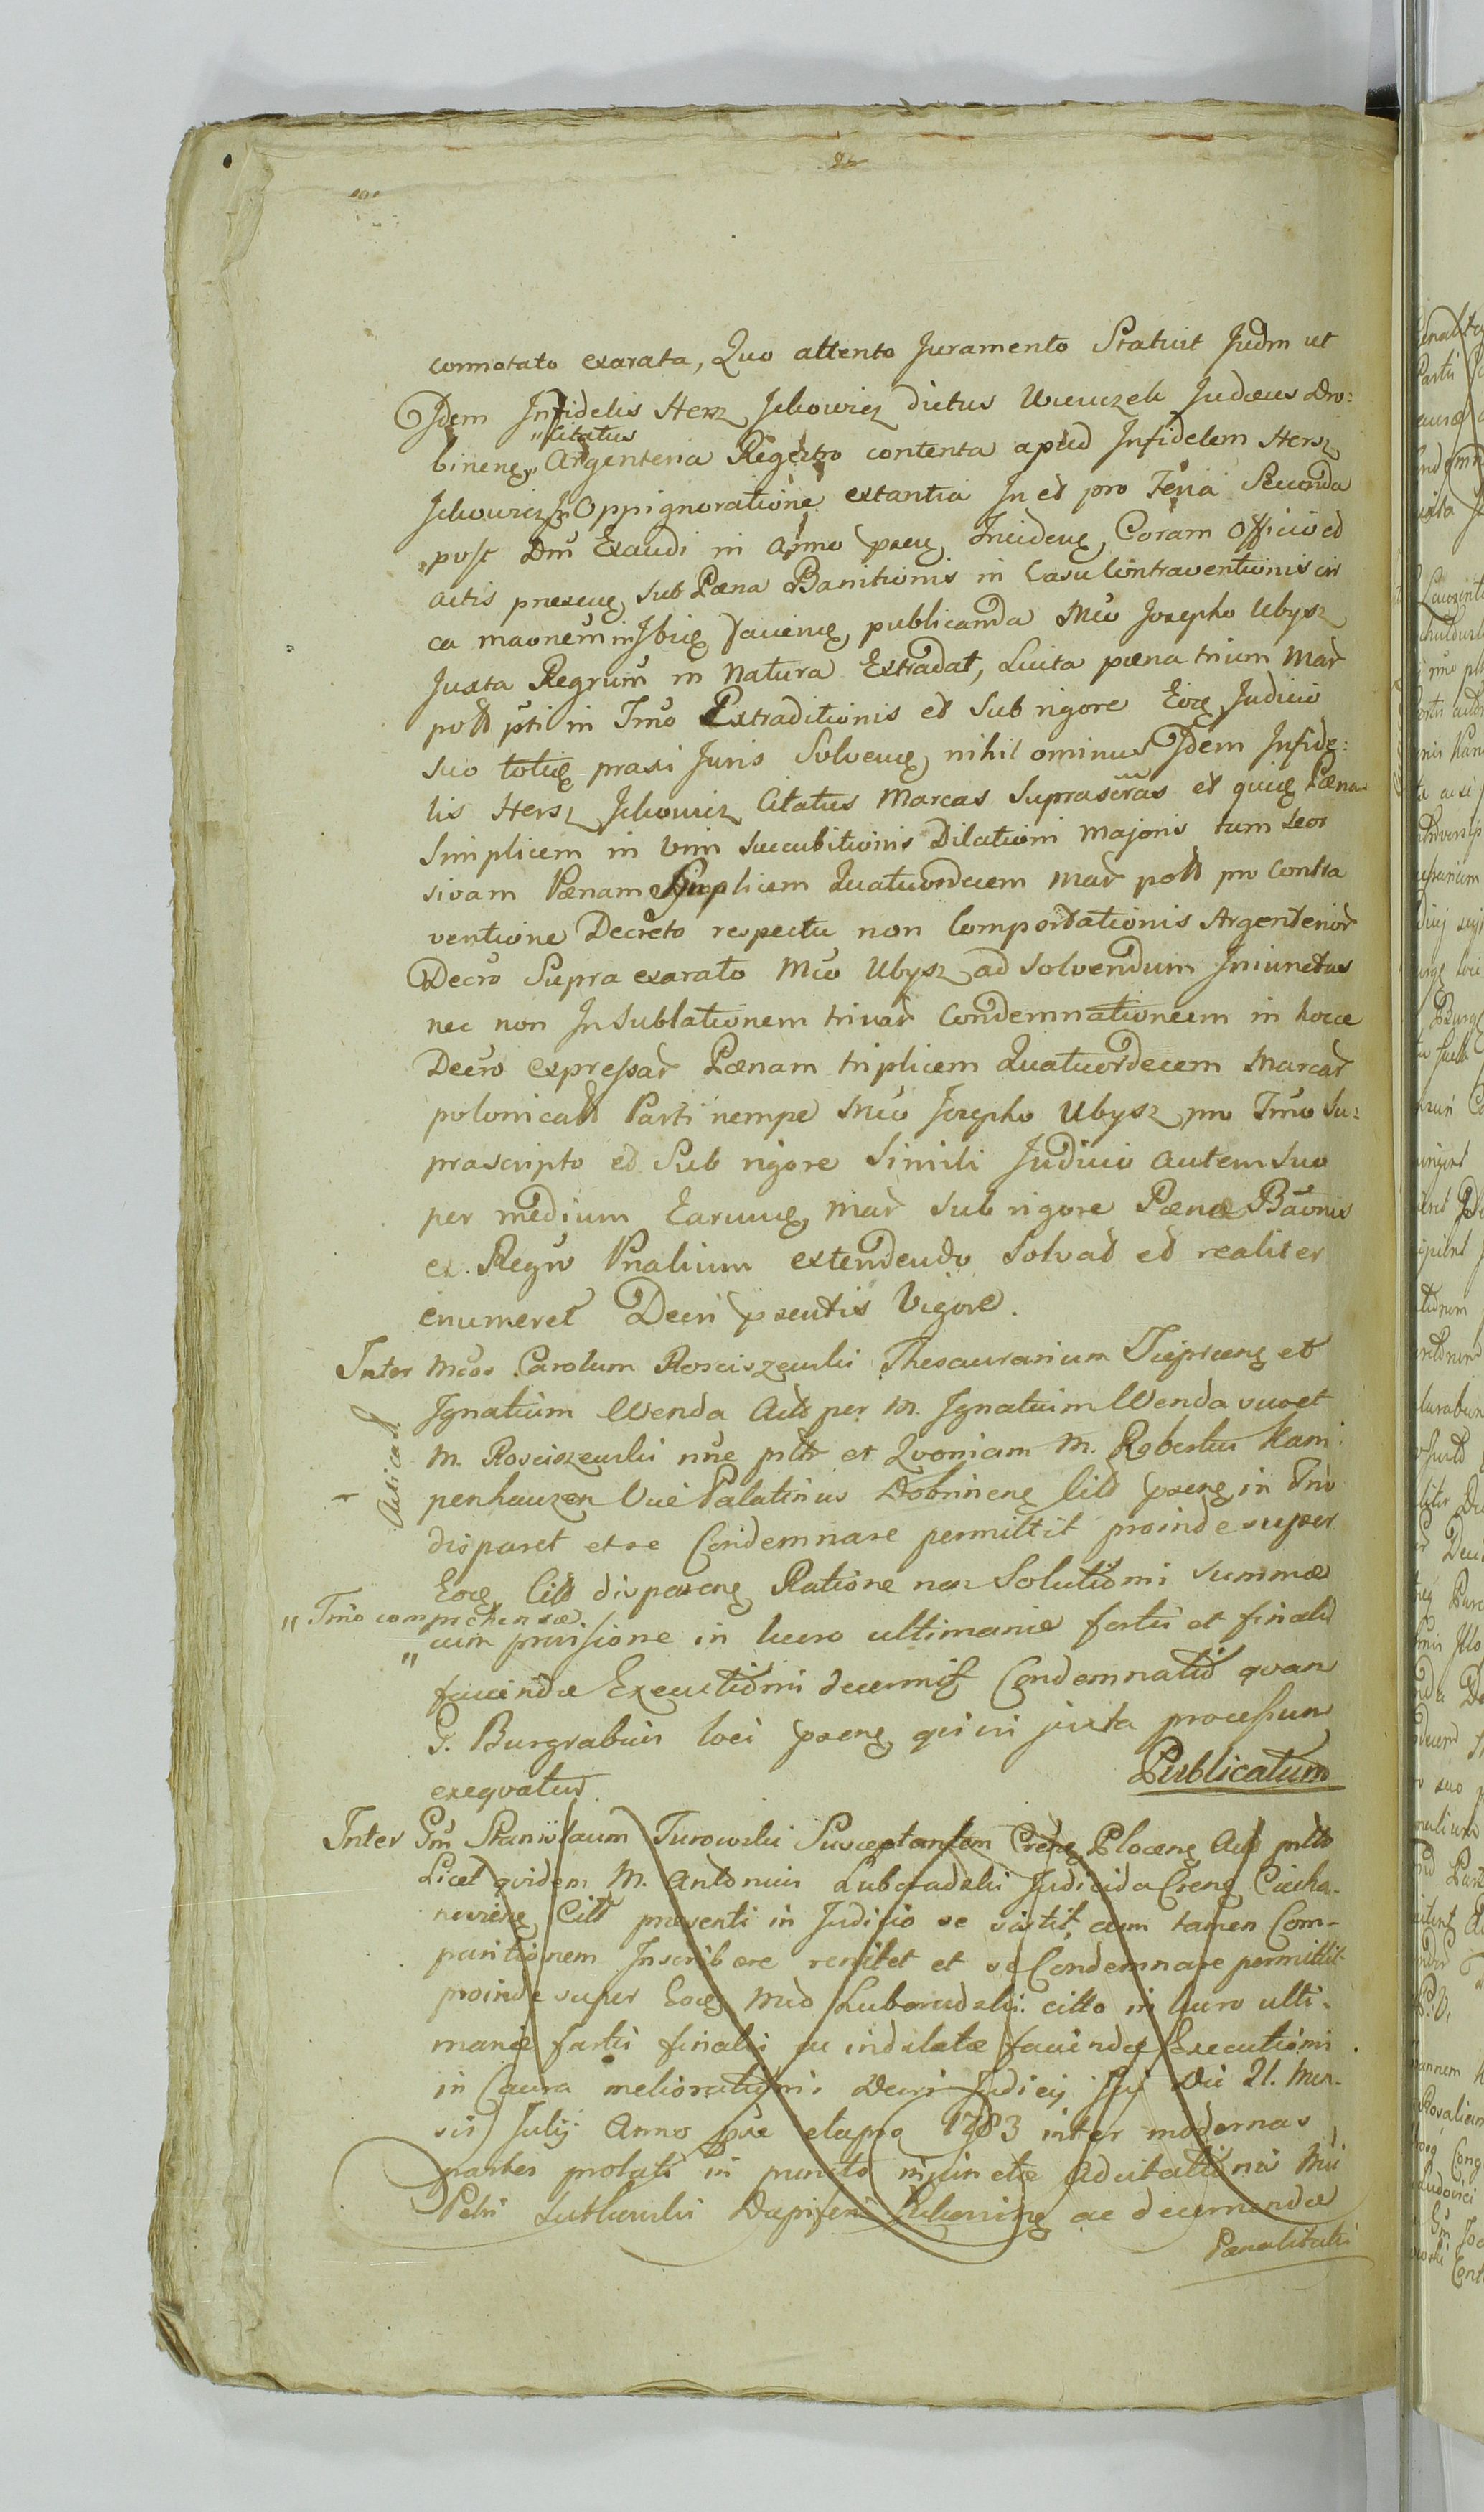 connotato exarata, Quo attento Juramento Statuit Judm ut
Idem Infidelis Hersz Jckowicz dictus Wieuczek Judaeus Dro:
"Citatus
binens, "Argenteria Regestro contenta apud Infidelem Hersz
Jckowicz In Oppignoratione extantia In et pro Feria Secunda
post Dm̃ Exaudi in Anno pñs Incidens, Coram Officio et
actis pñsens sub Pæna Banitionis in Casu Contraventionis
ca maonem in publicanda Mco Josepho Ubysz
Juxta Regrum in Natura Extradat, Luita pæna trium Mar
poll pti in Tmo Extraditionis et sub rigore Eoq Judicio
suo praxi Juris Solvens, nihil ominus Idem Infide:
lis Hersz Jckowicz Citatus Marcas Suprascras et Pæna
Simplicem in vim Succubitionis Dilationi Majoris tum
sivam Pænam Simplicem Quatuordecem Mar poll pro Contra
ventione Decreto respectu non Comportationis Argenterior
Decro Supra exarato Mco Ubysz ad solvendum Iniunctas
nec non In Sublationem trinar Condemnationeem in hocce
Decro expressar Pænam triplicem Quatuordecem Marcar
polonicall Parti nempe Mco Josepho Ubysz pro Tmo Su:
prascripto et Sub rigore Simili Judicio autem suo
per medium Earunq, Mar sub rigore Pænæ Baõnis
ex Regro Pnalium extendendo Solvat et realiter
enumeret Decri pñsentis Vigore.
Inter Mcos Carolum Rosciszewski Thesaurarium et
Ignatium Wenda Act per M. Ignatium Wenda suo et
M. Rosciszewski nñe pltr et Quoniam M. Robertus Kam
penhauzen Vice Palatinus Dobrinens Citt pñsens in Tmo
disparet et se Condemnare permittit proinde super
Eoq Citt disparens Ratione non Solutioni Summæ
"Tmo comprehensæ
"cum provisione in lucro ultimariæ fortis et finalis
faciendæ Executioni decernit Condemnatio quam
G. Burgrabius loci pñsens juxta processum
exequatur. Publicatum
Inter Gm Stanislaum Turowski Susceptantem Crens, Plocens Act pltte
Licet quidem M. Antonius Lubo Judicida Crens Ciecha-
noviens Citt præsenti in Judicio se sistit, cum tamen Com-
paritionem Inscribere renitet et se Condemnare permittit
proinde super Eoq Mco citto in lucro ulti-
mariæ fortis finalis ac indilatæ faciendæ Executioni
in Causa meliorationis Decri Judicij Die 21. Men-
sis Julij Anno elapso 1783 inter modernas
partes prolati in puncto iniunctæ Adcitationis Mci
Petri Dapiferi ac decernendæ
Pænalitatis